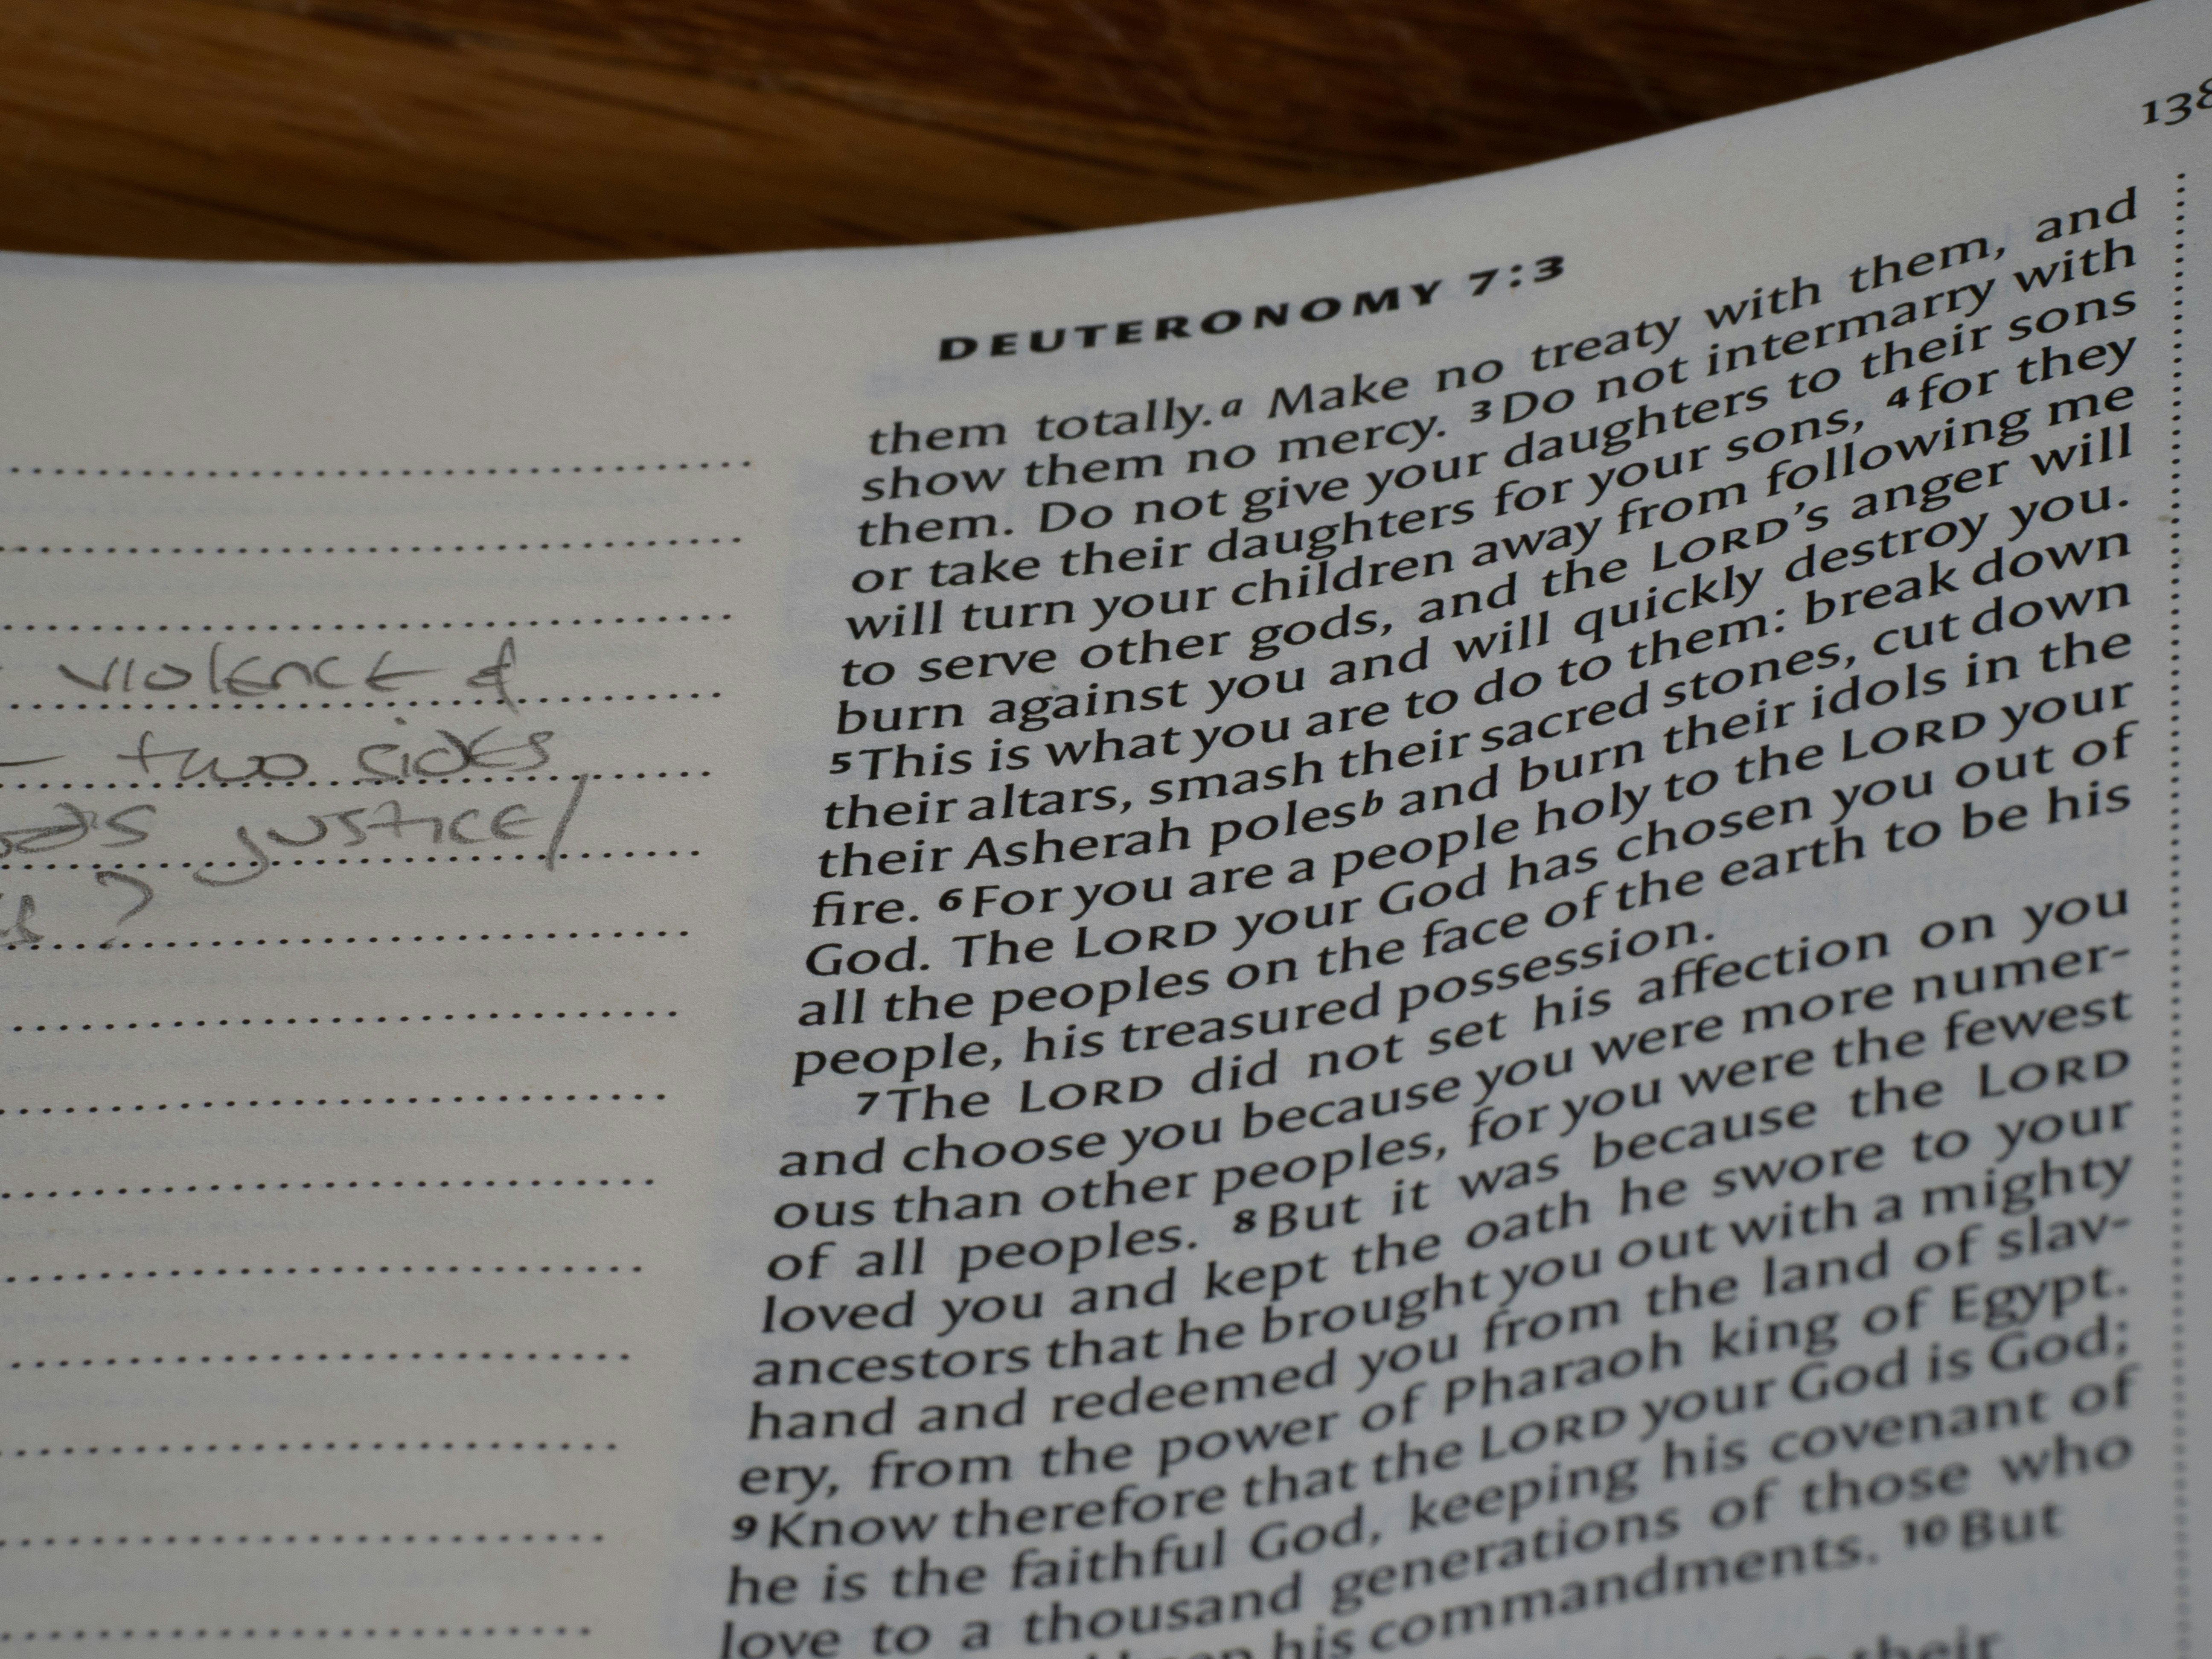 violence &
- two sides
justice/
?
138
DEUTERONOMY 7:3
them totally.a Make no treaty with them, and
show them no mercy. 3Do not intermarry with
them. Do not give your daughters to their sons
or take their daughters for your sons, 4for they
will turn your children away from following me
to serve other gods, and the LORD's anger will
burn against you and will quickly destroy you.
5This is what you are to do to them: break down
their altars, smash their sacred stones, cut down
their Asherah polesb and burn their idols in the
fire. 6For you are a people holy to the LORD your
God. The LORD your God has chosen you out of
all the peoples on the face of the earth to be his
people, his treasured possession.
7The LORD did not set his affection on you
and choose you because you were more numer-
ous than other peoples, for you were the fewest
of all peoples. 8But it was because the LORD
loved you and kept the oath he swore to your
ancestors that he brought you out with a mighty
hand and redeemed you from the land of slav-
ery, from the power of Pharaoh king of Egypt.
9Know therefore that the LORD your God is God;
he is the faithful God, keeping his covenant of
love to a thousand generations of those who
his commandments. 10But
their